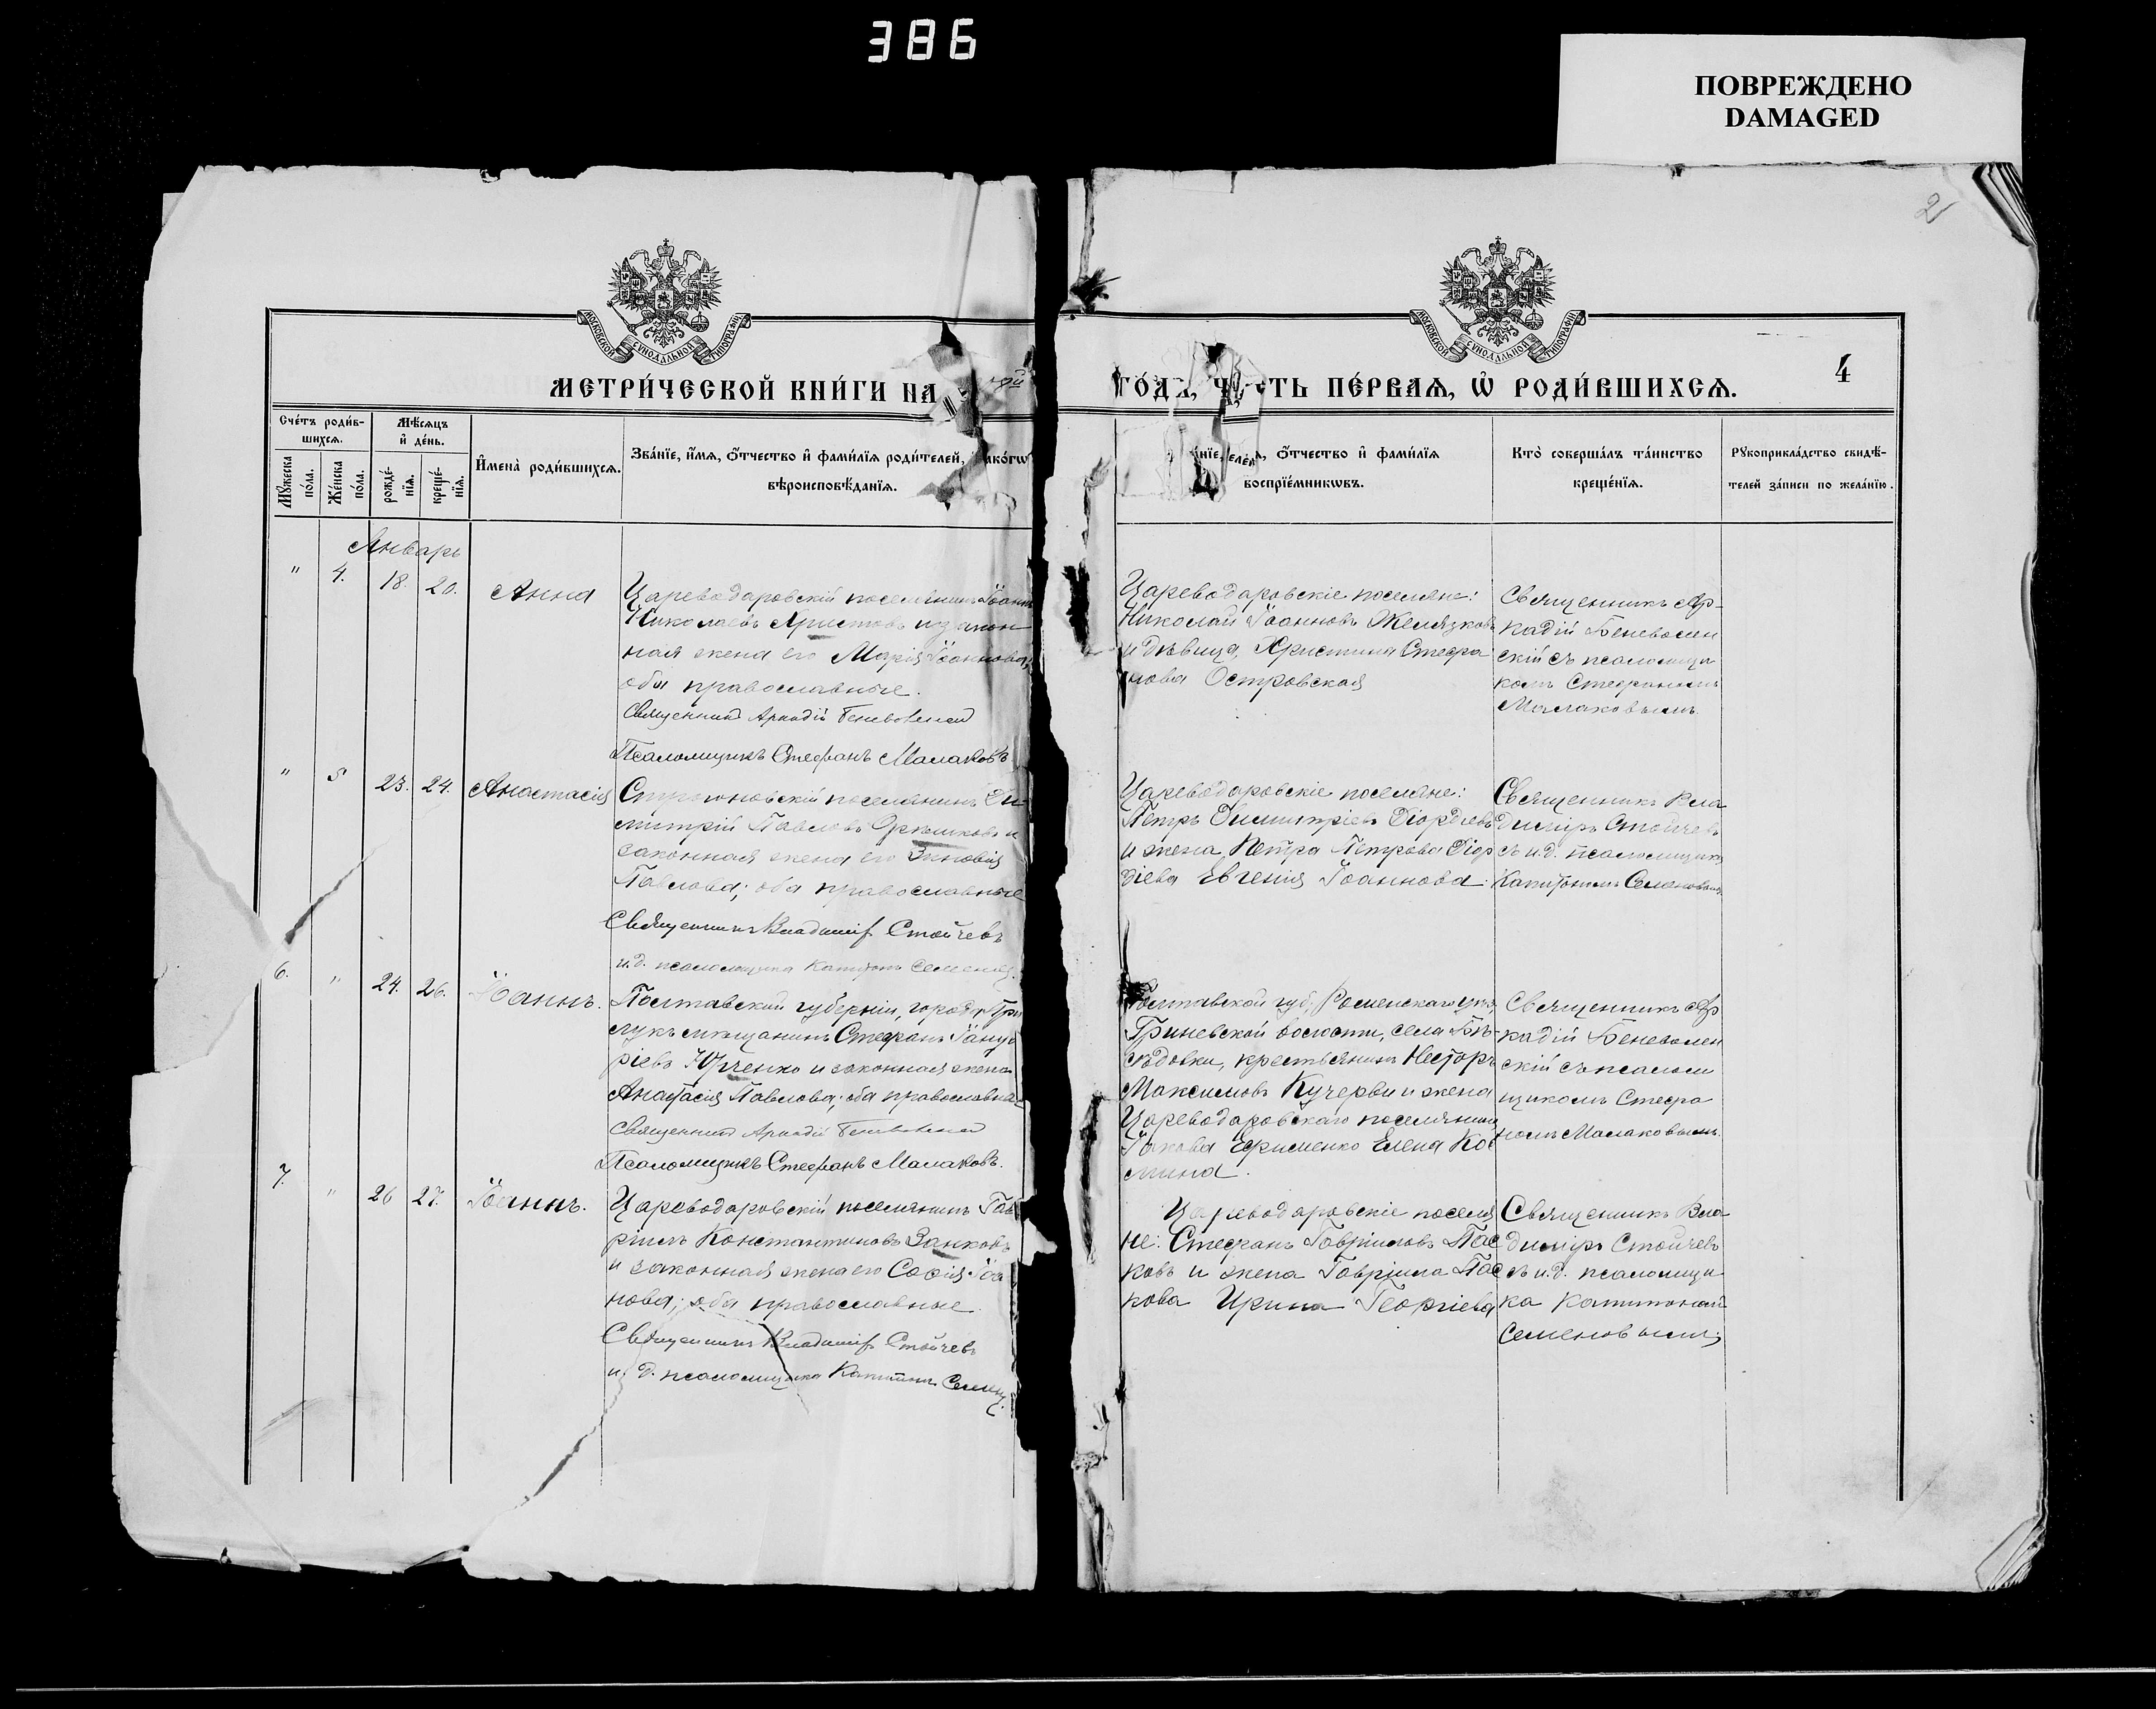 386
ПОВРЕЖДЕНО
DAMAGED
2
МОСКОВСКОЙ СУНОДАЛЬНОЙ ТИПОГРАФІИ
МОСКОВСКОЙ СУНОДАЛЬНОЙ ТИПОГРАФІИ
МЕТРИ́ЧЕСКОЙ КНИ́ГИ НА
ГО́ДЪ, ЧАСТЬ ПЕ́РВАѦ, Ѽ РОДИ́ВШИХСѦ.
4
Сче́тъ роди́в-
шихсѧ.
Мѣ́сѧцъ
и҆ де́нь.
Мꙋ́жеска
по́ла.
Же́нска
по́ла.
рожде́-
нїѧ.
креще́-
нїѧ.
И҆мена̀ роди́вшихсѧ.
Зва́нїе, и҆́мѧ, ѻ҆́тчество и҆ фами́лїѧ роди́телей,
вѣроисповѣ́данїѧ.
ѻ҆́тчество и҆ фами́лїѧ
воспрїе́мникѡвъ.
Кто̀ соверша́лъ та́инство
креще́нїѧ.
Рꙋкоприкла́дство свидѣ́-
телей за́писи по жела́нїю.
Январь
" 4. 18. 20. Анна
Цареводаровскій поселянинъ Іоаннъ
Николаевъ Христовъ и закон
ная жена его Марія Іоаннова,
оба православные.
Священникъ Аркадій Беневолен
Псаломщикъ Стефанъ Малаковъ
Цареводаровскіе поселяне:
Николай Іоанновъ Желязковъ
и дѣвица, Христина Стефа
нова Островская
Священникъ Ар-
кадій Беневолен
скій съ псаломщи
комъ Стефаномъ
Малаковымъ.
" 5 23. 24. Анастасія
поселянинъ Ди-
митрій Павловъ и
законная жена его Зиновія
Павлова; оба православные
Священникъ Владимір Стойчевъ
и.д. псаломщика Капитонъ Семенов
Цареводаровскіе поселяне:
Петръ Димитріевъ Діордіевъ
и жена Петра Петрова Діор
діева Евгенія Іоаннова.
Священникъ Вла
димиръ Стойчевъ
съ и.д. псаломщика
Капитономъ Семеновымъ
6. " 24. 26. Іоаннъ.
Полтавской губерніи, города При
лукъ мѣщанинъ Стефанъ Іану
ріевъ Юрченко и законная жена
Анастасія Павлова; оба православна
Священникъ Аркадій Беневолен
Псаломщикъ Стефанъ Малаковъ.
Полтавской губ., Роменскаго уѣз,
Гриневской волости, села Бѣ-
сѣдовки, крестьянинъ Несторъ
Максимовъ Кучервы и жена
Цареводаровскаго поселянина
Іакова Ефименко Елена Кос
мина.
Священникъ Ар
кадій Беневолен
скій съ псалом
щикомъ Стефа
номъ Малаковымъ.
7. " 26 27. Іоаннъ.
Цареводаровскій поселянинъ Гав
ріилъ Константиновъ Занковъ
и законная жена его Софія Іоа
нова; оба православные.
Священникъ Владимір Стойчевъ
и. д. псаломщика Капитонъ Семен
Цареводаровскіе поселя
не: Стефанъ Гавріиловъ Пас
ковъ и жена Гавріила Пас
кова Ирина Георгіева
Священникъ Вла
димиръ Стойчевъ
съ и.д. псаломщи
ка Капитономъ
Семеновымъ;